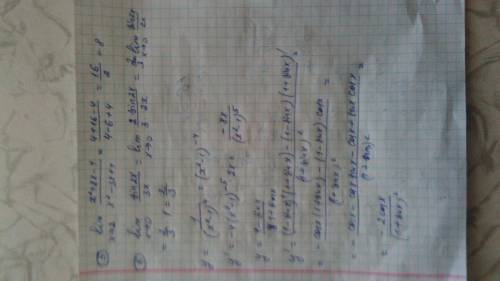 ⑤ lim x→2 (x²+8x-4)/(x²-3x+4) = (4+16-4)/(4-6+4) = 16/2 = 8
⑥ lim x→0 sin2x/3x = lim x→0 2 sin2x/3 2x = 2/3 lim x→0 sin2x/2x
= 2/3 · 1 = 2/3
y = 1/(x²-1)⁴ = (x²-1)⁻⁴
y' = -4(x²-1)⁻⁵ · 2x = -8x/(x²-1)⁵
y = (1-sinx)/(1+sinx)
y' = ((1-sinx)'(1+sinx) - (1-sinx)(1+sinx)')/(1+sinx)² =
= (-cosx(1+sinx) - (1-sinx)cosx)/(1+sinx)² =
= (-cosx-cosx sinx-cosx+sinx cosx)/(1+sinx)² =
= -2cosx/(1+sinx)²